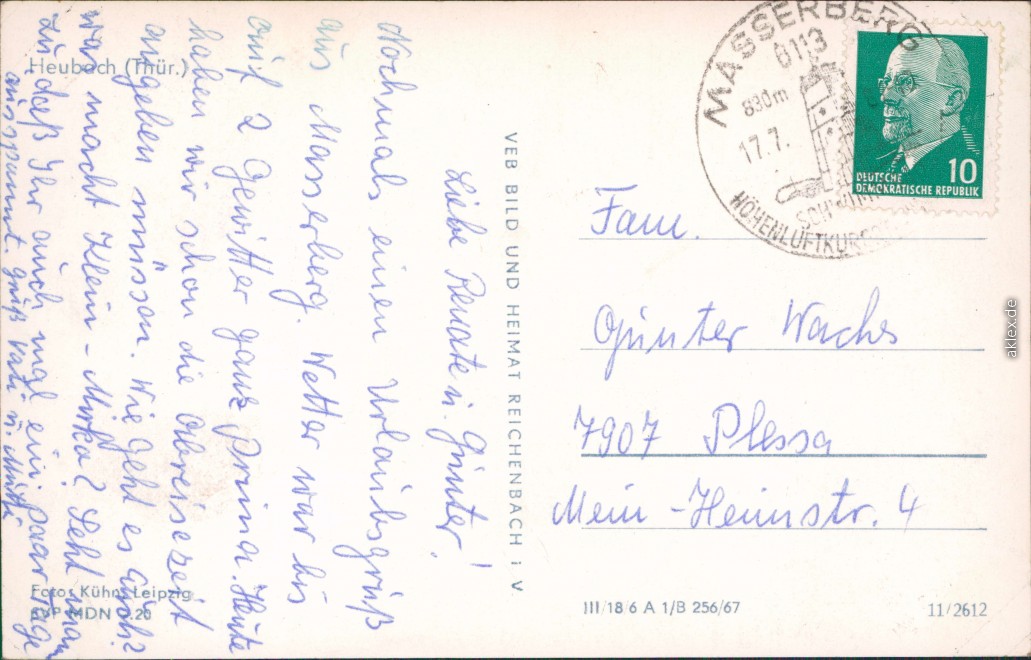 Heubach (Thür.)
Liebe Renate u. Günter!
Nochmals einen Urlaubsgruß
aus Masserberg. Wetter war bis
auf 2 Gewitter ganz Prima. Heute
haben wir schon die Abreisezeit
angeben müssen. Wie geht es Euch?
was macht Klein-Mirka? Seht man
zu daß Ihr auch mal ein paar Tage
ausspannt. Gruß Vati u. Mutti
Foto: Kühn, Leipzig
EVP MDN 0.20
VEB BILD UND HEIMAT REICHENBACH i. V.
MASSERBERG
6113
830m
17.7.
HÖHENLUFTKURORT
DEUTSCHE
DEMOKRATISCHE REPUBLIK
10
Fam.
Günter Wachs
7907 Plessa
Mein-Heimstr. 4
III/18/6 A 1/B 256/67
11/2612
aklex.de